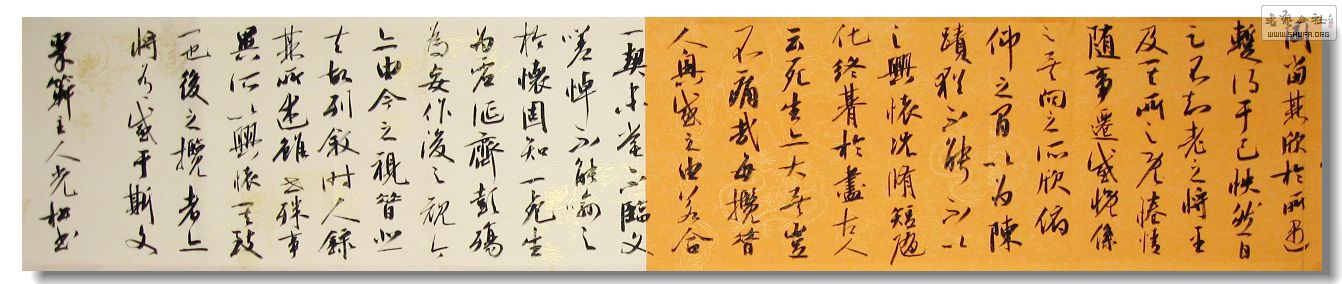 書藝公社
WWW.SHUFA.ORG
同當其欣於所遇
暫得于己怏然自
足不知老之將至
及其所之既惓情
随事遷感慨係
之矣向之所欣俯
仰之間以為陳
蹟猶不能不以
之興懷況脩短随
化終期於盡古人
云死生亦大矣豈
不痛哉每攬昔
人興感之由若合
一契未嘗不臨文
嗟悼不能喻之
於懷固知一死生
為虛誕齊彭殤
為妄作後之視今
亦由今之視昔悲
夫故列敘時人錄
其所述雖世殊事
異所以興懷其致
一也後之攬者亦
將有感于斯文
主人光書